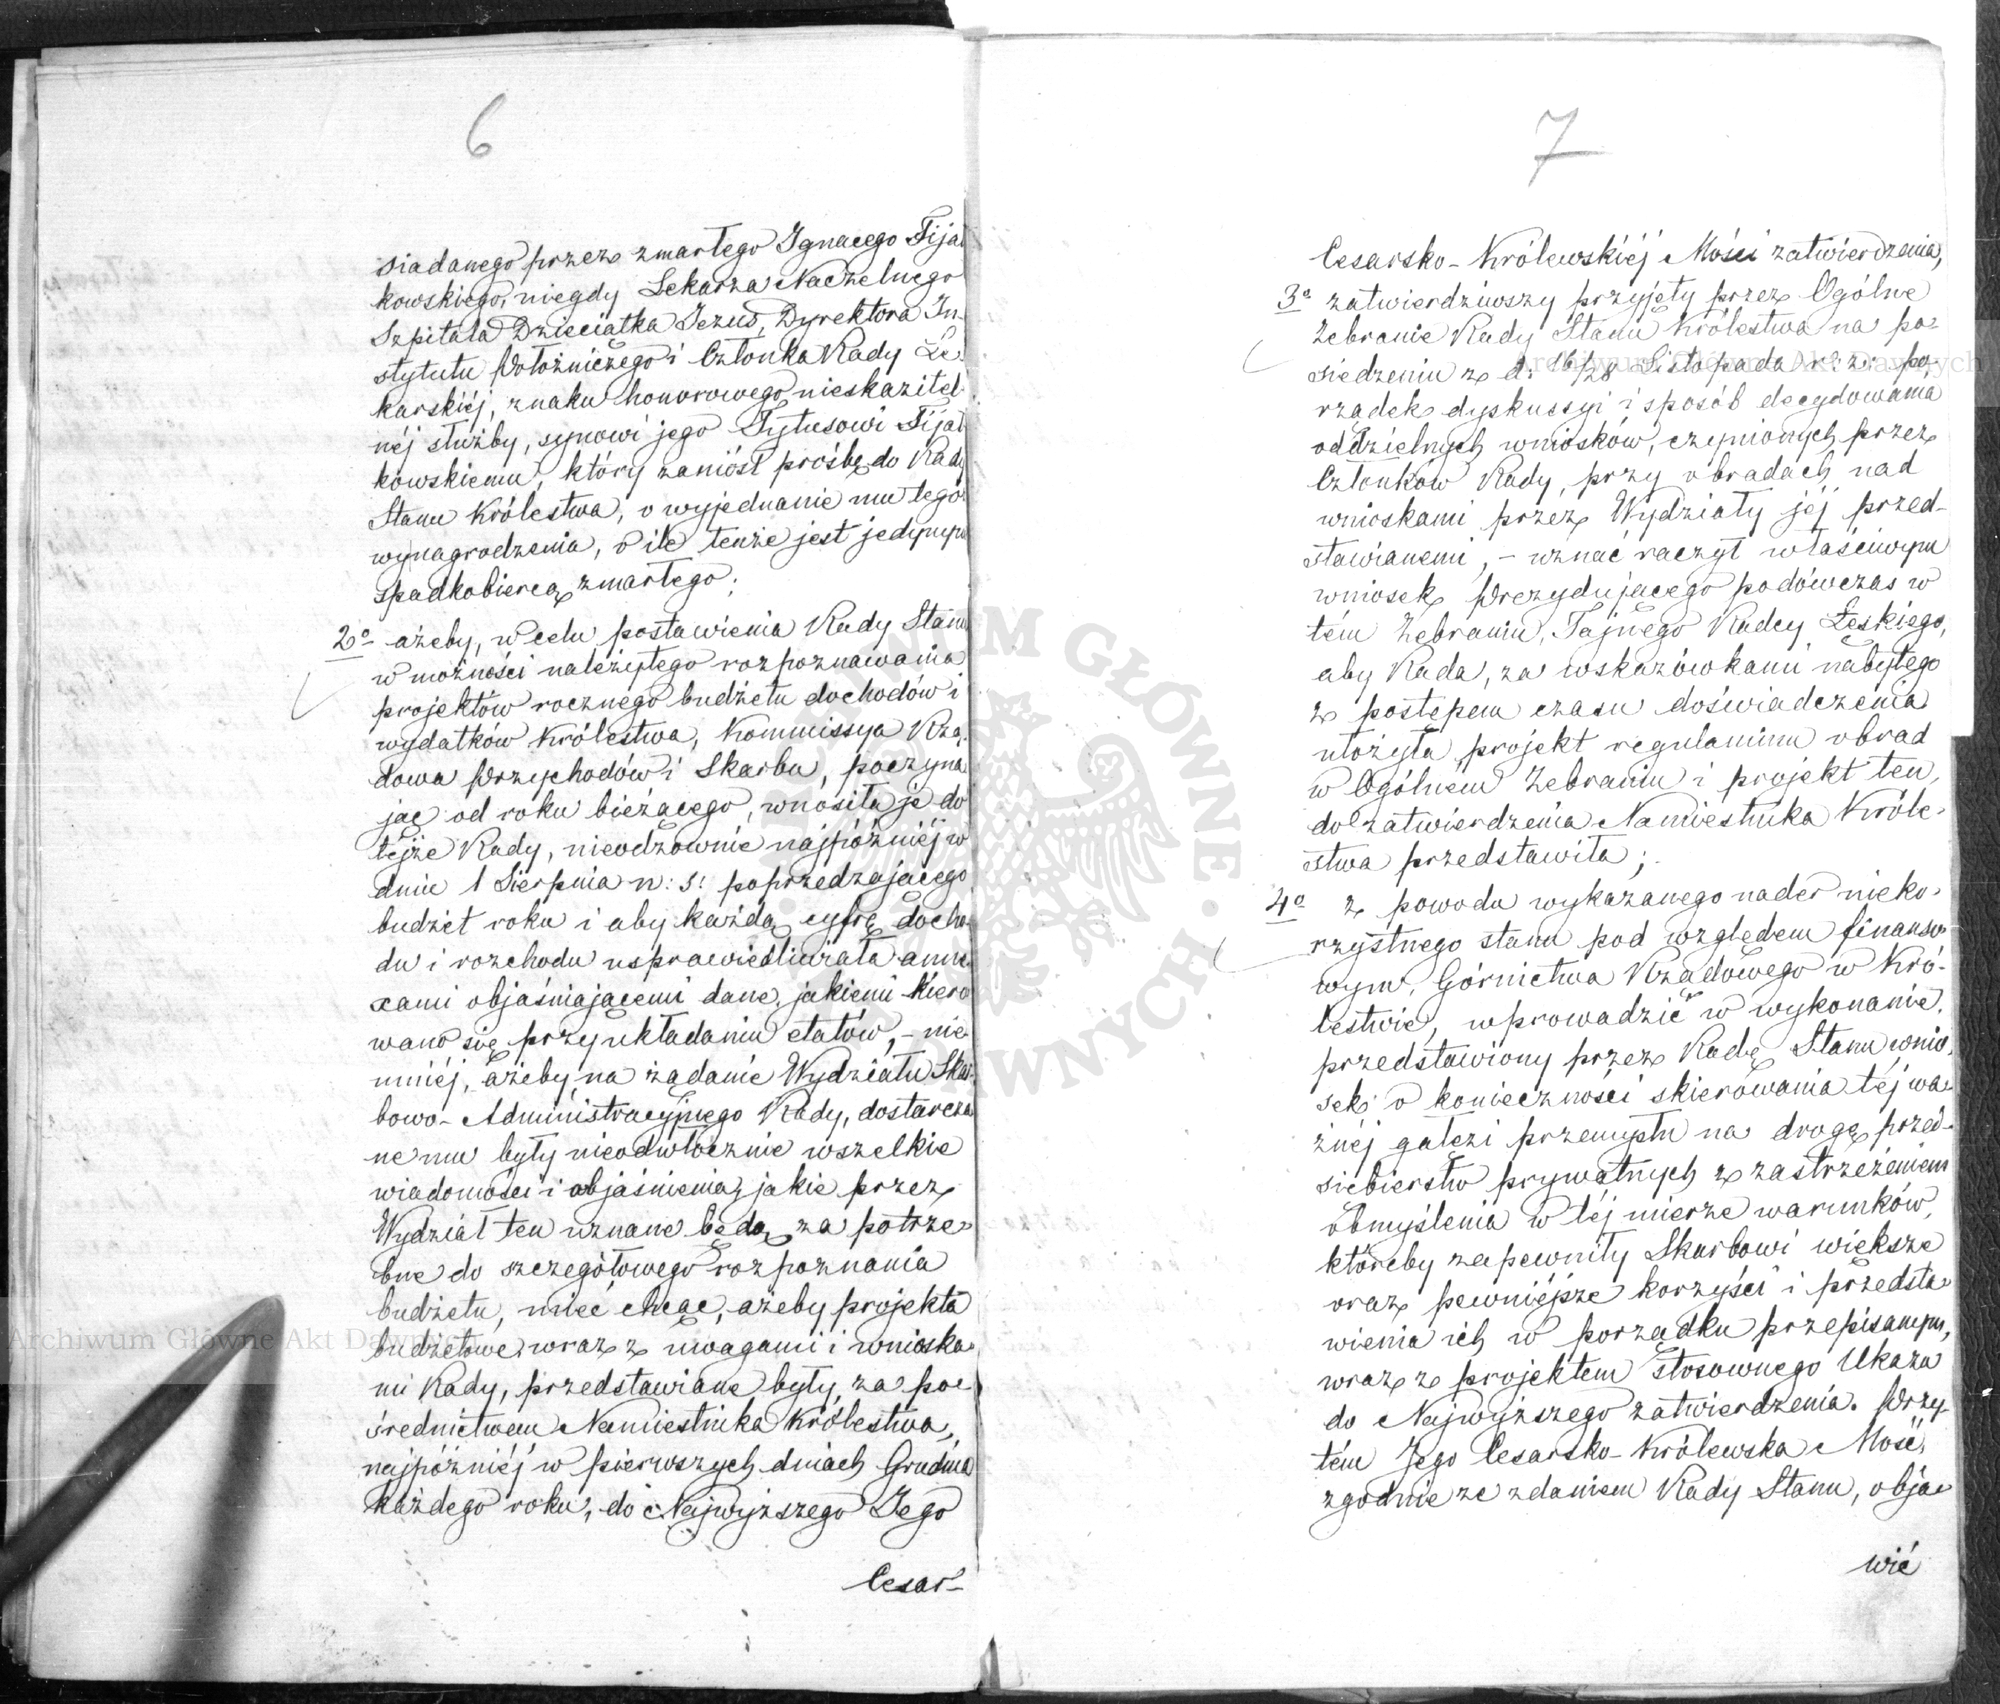 6
siadanego przez zmarłego Ignacego Fijał
kowskiego, niegdy Lekarza Naczelnego
Szpitala Dzieciątka Jezus, Dyrektora In-
stytutu Położniczego i Członka Rady Le-
karskiéj, znaku honorowego nieskazitel
néj służby, synowi jego Tytusowi Fijał
kowskiemu, który zaniósł prośbę do Rady
Stanu Królestwa, o wyjednanie mu tego
wynagrodzenia, o ile tenże jest jedynym
spadkobiercą zmarłego;
2o ażeby, w celu postawienia Rady Stanu
w możności należytego rozpoznawania
projektów rocznego budżetu dochodów i
wydatków Królestwa, Kommissya Rzą-
dowa Przychodów i Skarbu, poczyna
jąc od roku bieżącego, wnosiła je do
téjże Rady, nieodzownie najpóźniéj w
dniu 1 Sierpnia n: s: poprzedzającego
budżet roku i aby każdą cyfrę docho-
du i rozchodu usprawiedliwiała anne-
xami objaśniającemi dane, jakiemi kiero
wano się przy układaniu etatów, - nie
mniéj, ażeby na żądanie Wydziału Skar-
bowo-Administracyjnego Rady, dostarcza
ne mu były nieodwłocznie wszelkie
wiadomości i objaśnienia, jakie przez
Wydział ten uznane będą za potrze-
bne do szczegółowego rozpoznania
budżetu, mieć chcąc, ażeby projekta
budżetowe, wraz z uwagami i wnioska-
mi Rady, przedstawiane były, za po-
średnictwem Namiestnika Królestwa,
najpóźniéj w pierwszych dniach Grudnia
każdego roku, do Najwyższego Jego
Cesar-
7
Cesarsko-Królewskiéj Mości zatwierdzenia,
3o zatwierdziwszy przyjęty przez Ogólne
Zebranie Rady Stanu Królestwa na po-
siedzeniu z d: 16/28 Listopada r: z: po-
rządek dyskussyi i sposób decydowania
oddzielnych wniosków, czynionych przez
Członków Rady, przy obradach nad
wnioskami przez Wydziały jéj przed-
stawianemi, - uznać raczył właściwym
wniosek Prezydującego podówczas w
tém Zebraniu, Tajnego Radcy Łęskiego,
aby Rada, za wskazówkami nabytego
z postępem czasu doświadczenia
ułożyła projekt regulaminu obrad
w Ogólnem Zebraniu i projekt ten,
do zatwierdzenia Namiestnika Króle-
stwa przedstawiła;
4o z powodu wykazanego nader nieko-
rzystnego stanu pod względem finanso-
wym, Górnictwa Rządowego w Kró-
lestwie, wprowadzić w wykonanie,
przedstawiony przez Radę Stanu wnio-
sek o konieczności skierowania téj wa-
żnéj gałęzi przemysłu na drogę przed-
siebierstw prywatnych z zastrzeżeniem
obmyślenia w téj mierze warunków,
któreby zapewniły Skarbowi większe
oraz pewniejsze korzyści i przedsta-
wienia ich w porządku przepisanym,
wraz z projektem stosownego Ukazu
do Najwyższego zatwierdzenia. Przy-
tém Jego Cesarsko-Królewska Mość,
zgodnie ze zdaniem Rady Stanu, obja-
wić
Archiwum Główne Akt Dawnych
Archiwum Główne Akt Dawnych